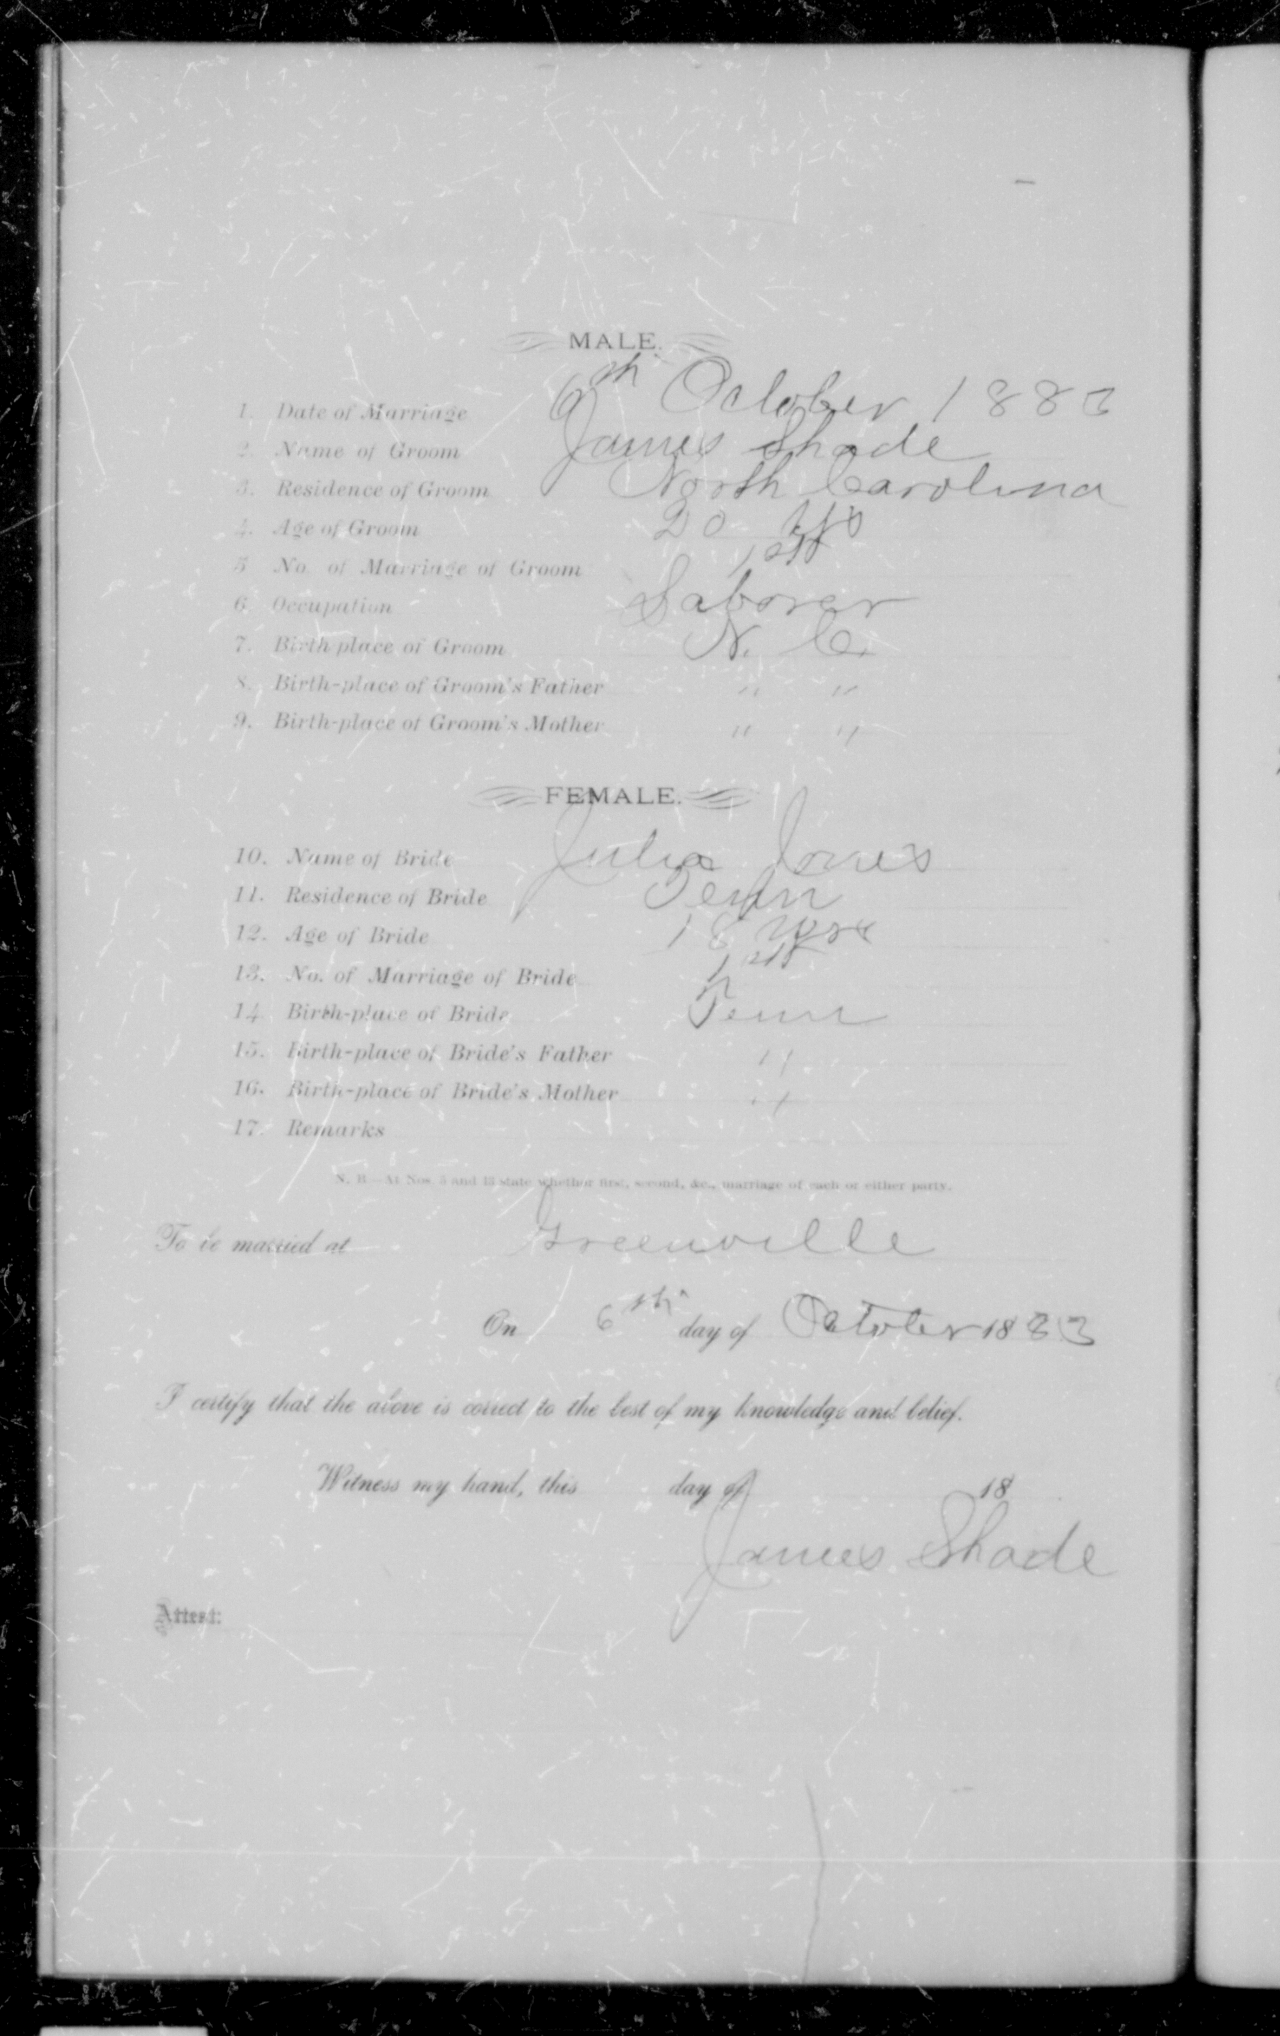 MALE.
1. Date of Marriage 6th October 1883
2. Name of Groom James Shade
3. Residence of Groom North Carolina
4. Age of Groom 20 yrs
5 No. of Marriage of Groom 1st
6 Occupation Laborer
7. Birth place of Groom N. C.
8. Birth-place of Groom's Father " "
9. Birth-place of Groom's Mother " "
FEMALE.
10. Name of Bride Julia Jones
11. Residence of Bride Tenn
12. Age of Bride 18 yrs
13. No. of Marriage of Bride 1st
14 Birth-place of Bride Tenn
15. Birth-place of Bride's Father "
16. Birth-place of Bride's Mother "
17. Remarks
N. B.—At Nos. 5 and 13 state whether first, second, &c., marriage of each or either party.
To be married at Greenville
On 6th day of October 1883
I certify that the above is correct to the best of my knowledge and belief.
Witness my hand, this day of 18
James Shade
Attest: